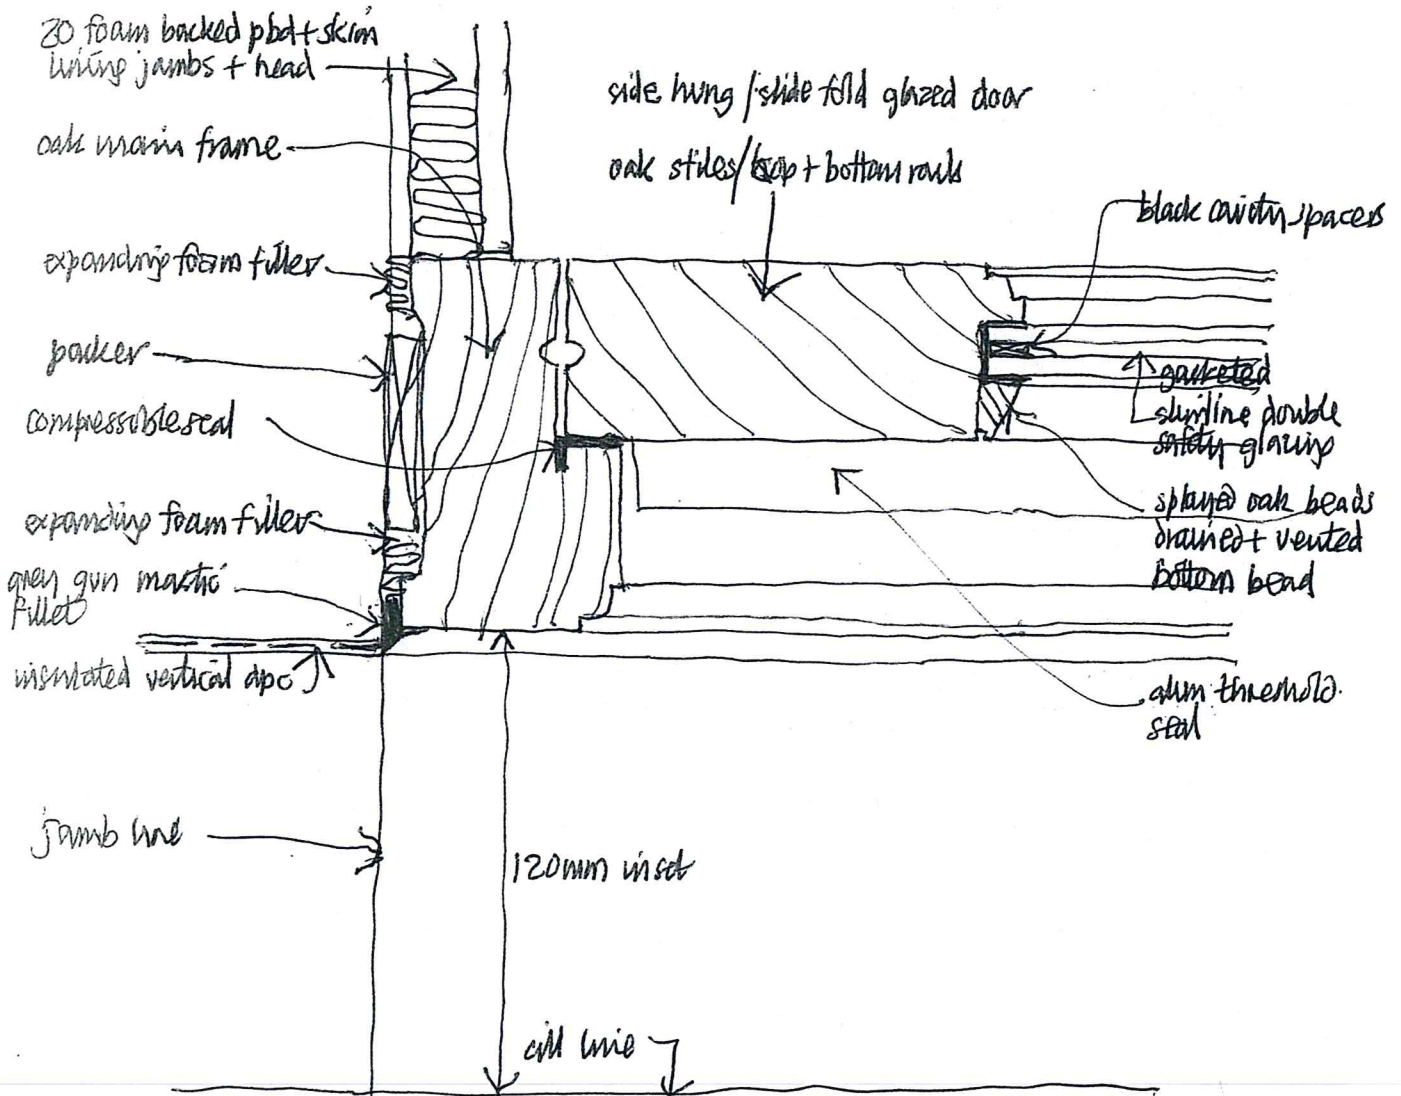 30 foam backed pbd + skim
lining jambs + head
oak main frame
expanding foam filler
packer
compressible seal
expanding foam filler
grey gun mastic
fillet
insulated vertical dpc
jamb line
side hung / slide fold glazed door
oak stiles / top + bottom rails
black cavity spacers
gasketed
slimline double
safety glazing
splayed oak beads
drained + vented
bottom bead
alum threshold
seal
120mm inset
cill line